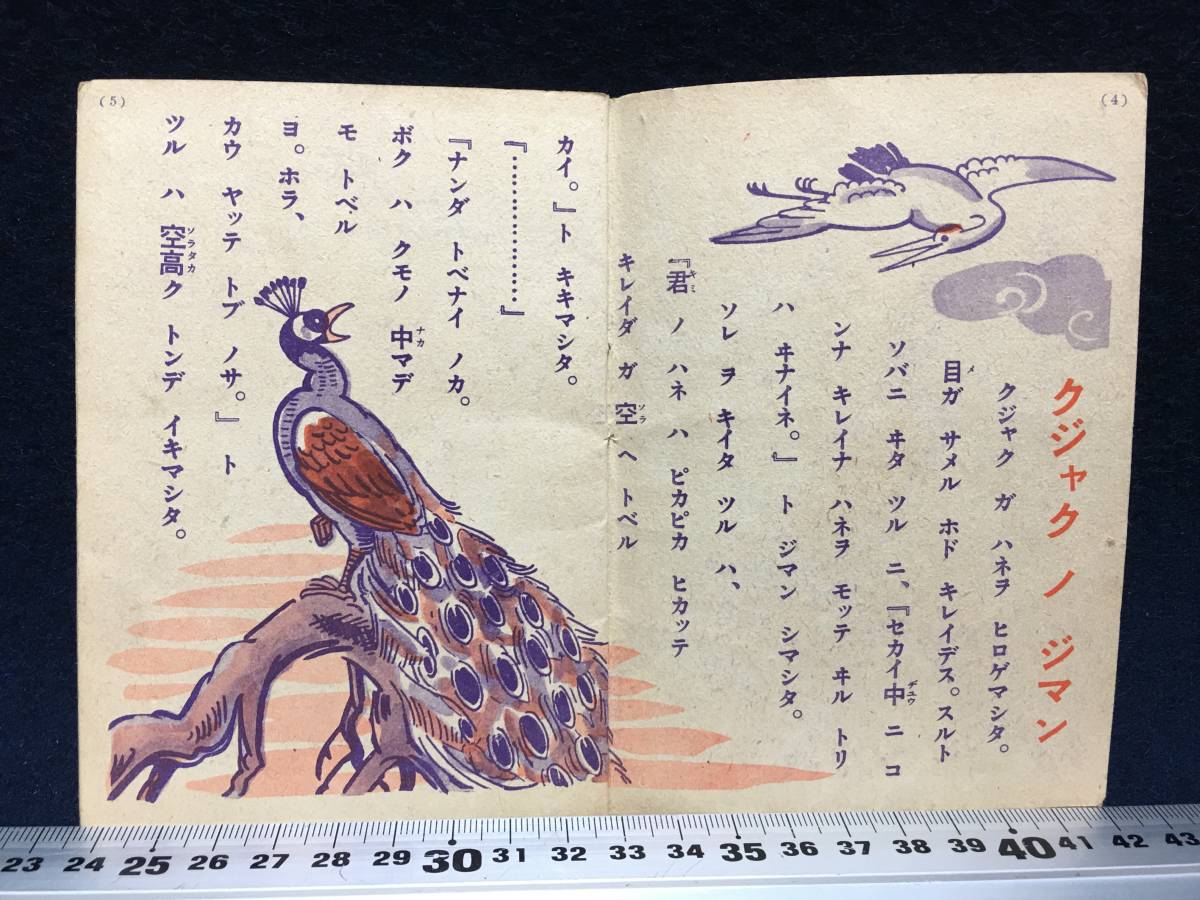 (4)
クジャク ノ ジマン
クジャク ガ ハネヲ ヒロゲマシタ。
目ガ サメル ホド キレイデス。スルト
メ
ソバニ ヰタ ツル ニ、『セカイ中 ニ コ
ヂユウ
ンナ キレイナ ハネヲ モッテ ヰル トリ
ハ ヰナイネ。』 ト ジマン シマシタ。
ソレ ヲ キイタ ツル ハ、
『君 ノ ハネ ハ ピカピカ ヒカッテ
キミ
キレイダ ガ 空 ヘ トベル
ソラ
(5)
カイ。』ト キキマシタ。
『………………』
『ナンダ トベナイ ノカ。
ボク ハ クモノ 中マデ
ナカ
モ トベル
ヨ。ホラ、
カウ ヤッテ トブ ノサ。』 ト
ツル ハ 空高ク トンデ イキマシタ。
ソラタカ
23 24 25 26 27 28 29 30 31 32 33 34 35 36 37 38 39 40 41 42 43